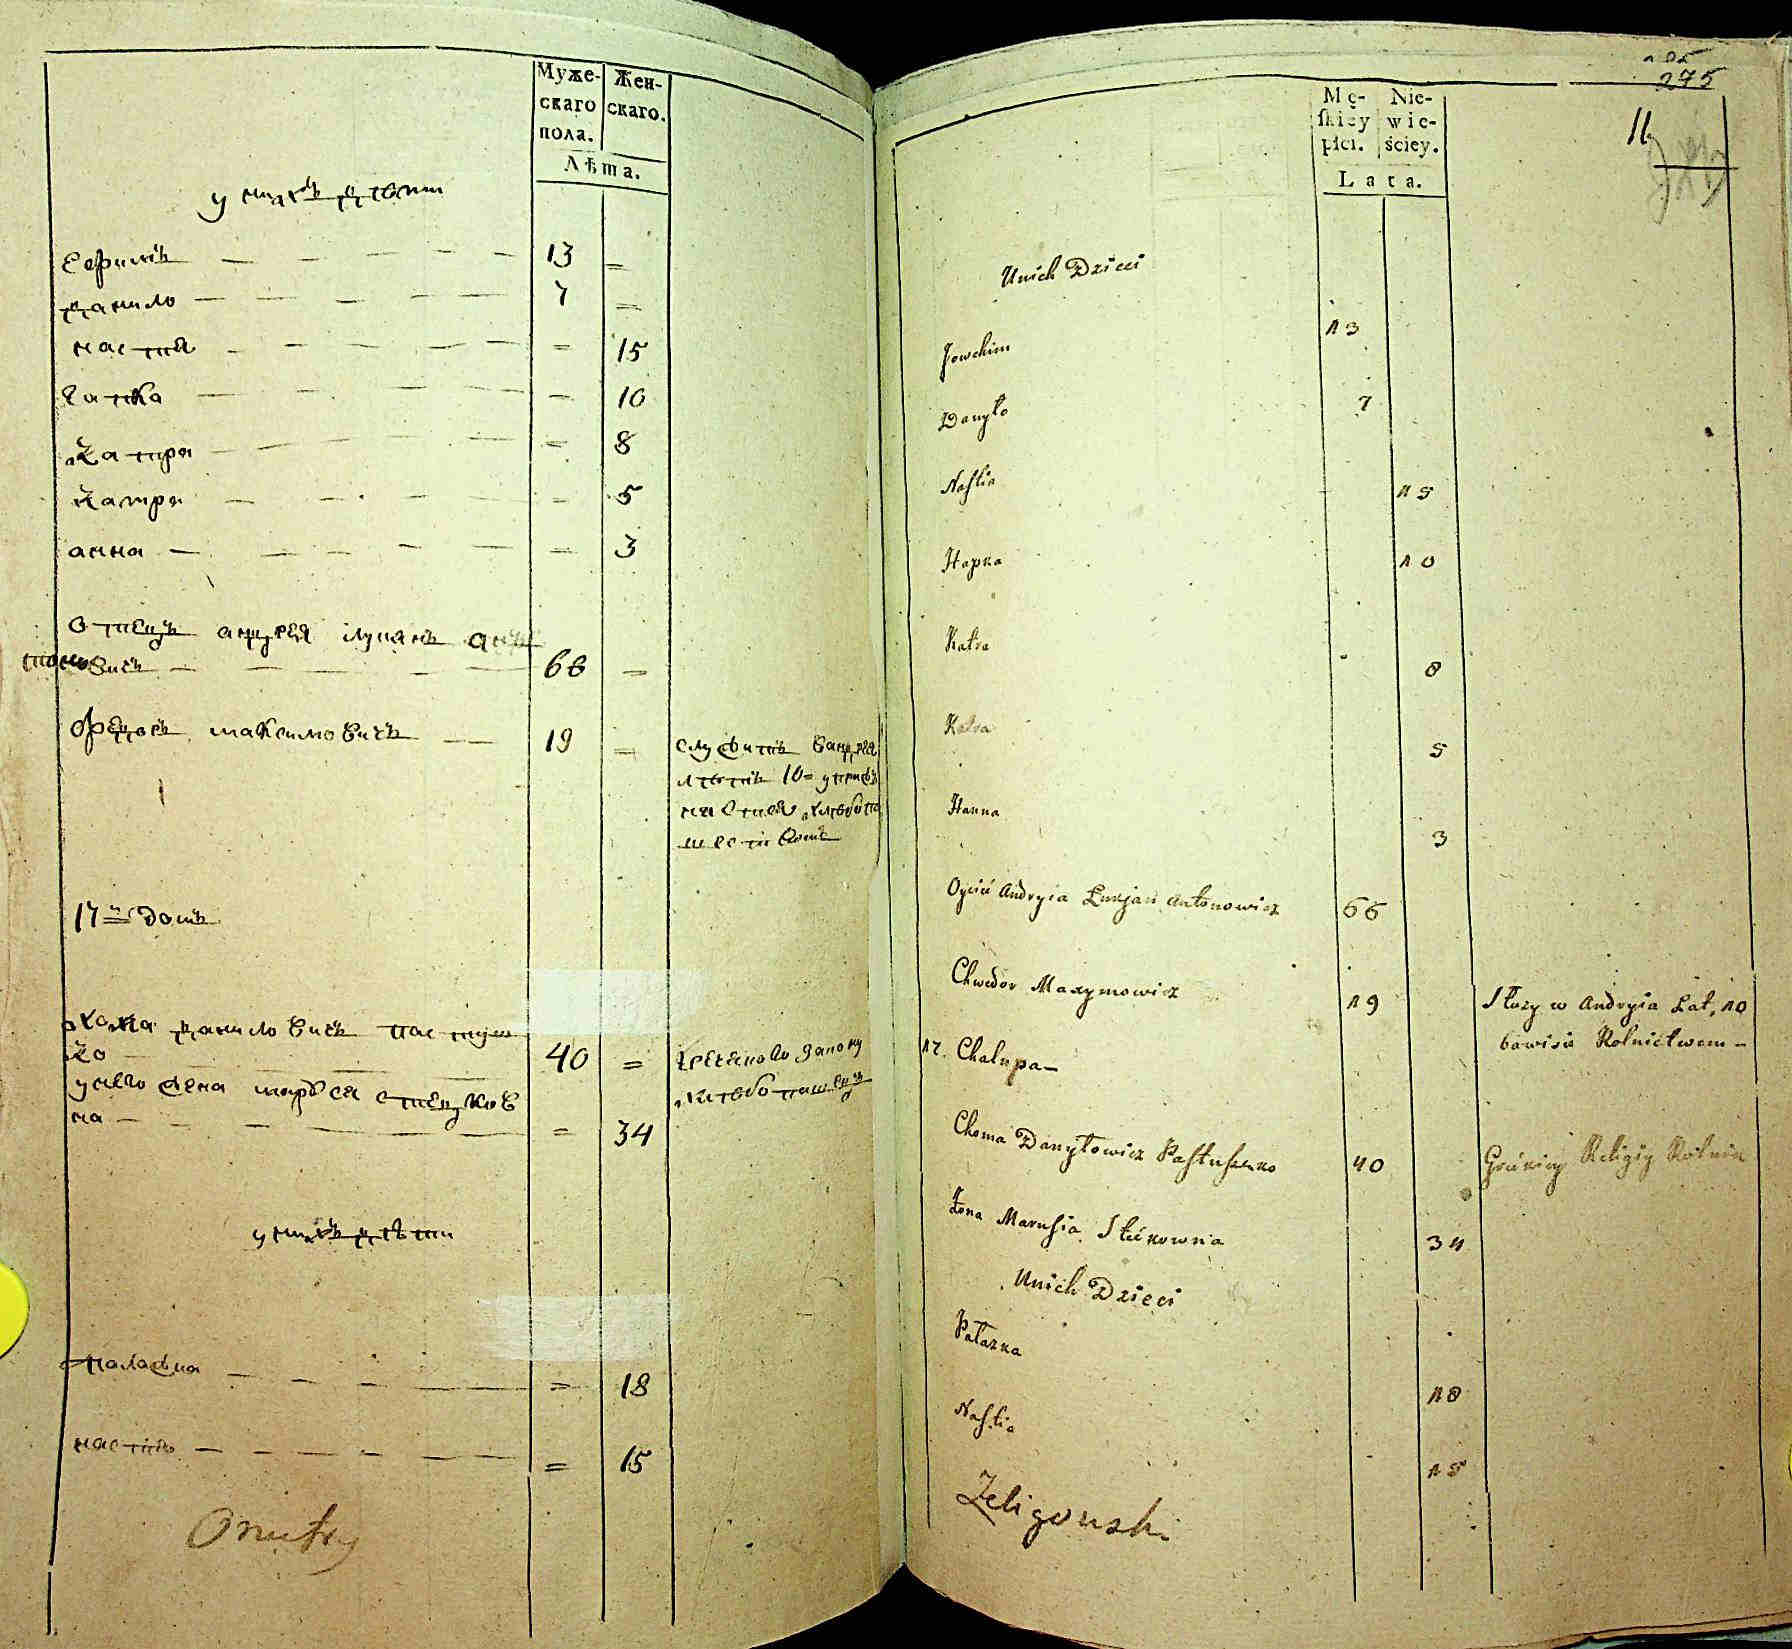 Муже-
скаго
пола.
Жен-
скаго.
Лѣта.
у нихъ дѣти
Ефимъ 13 =
данило 7 =
настя = 15
гапка = 10
Катря = 8
Катря = 5
анна = 3
Отецъ андрея лукянъ анъ
тоновичъ 66 =
Ѳедосъ максимовичъ 19 =
служитъ Вандрея
лѣтъ 10=
17й Домъ
хома даниловичъ пастушен
Ко 40 =
греческаго закону
хлебопашецъ
унего жена маруся стецков
на = 34
у нихъ дѣти
палажка = 18
настя = 15
275
11
Mę-
skiey
płci.
Nie-
wie-
ściey.
Lata.
Unich Dzieci
Jowchim 13
Danyło 7
Nastia 15
Hapka 10
Katra 8
Katra 5
Hanna 3
Oyciec Andryia Łukjan Antonowicz 66
Chwedor Maxymowicz 19
Służy w Andryia Lat, 10
bawisie Rolnictwem –
17. Chałupa –
Choma Danyłowicz Pastuszenko 40
Gréckiey Religiy Rolnik
Żona Marusia Stećkowna 34
Unich Dzieci
Pałazka 18
Nastia 15
Zeligowski